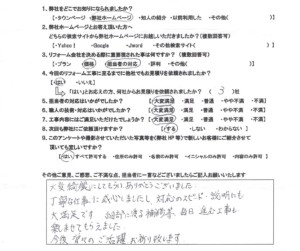 1. 弊社をどこでお知りになられましたか?
・タウンページ ・弊社ホームページ ・知人の紹介 ・以前利用した ・その他( )
2. 弊社ホームページとお答え頂いた方へ
どちらの検索サイトから弊社ホームページにお越しいただきましたか?(複数回答可)
・Yahoo! ・Google ・Jword ・その他検索サイト( )
3. リフォーム会社を決める際に重要視された事は何ですか?(複数回答可)
・プラン ・価格 ・担当者の対応 ・評判 ・その他( )
4. 今回のリフォーム工事に至るまでに他社でもお見積りを依頼されましたか?
・はい ・いいえ
「はい」とお応えの方、何社からお見積りを依頼されましたか? ( 3 )社
5. 担当者の対応はいかがでしたか? (大変満足 ・満足 ・普通 ・やや不満 ・不満)
6. 職人の技術・対応はいかがでしたか? (大変満足 ・満足 ・普通 ・やや不満 ・不満)
7. 工事内容にはご満足いただけましたか? (大変満足 ・満足 ・普通 ・やや不満 ・不満)
8. 次回も弊社にご依頼頂けますか? (・する ・しない ・わからない)
9. このアンケートや撮影させていただいた写真等を(弊社 HP 等)で新しいお客様にご紹介させて
頂いても宜しいですか?
(はい:すべて許可する ・住所のみ匿名 ・名前のみ匿名 ・イニシャルのみ許可 ・内容のみ許可)
その他ご意見、ご不満な点、担当者に一言などございましたらご記入お願いいたします
大変綺麗にしてもらいありがとうございました
丁寧な仕事に感心しましたし 対応のスピード・説明にも
大満足です
観させてもらえました
今後 益々のご活躍 お祈り致します